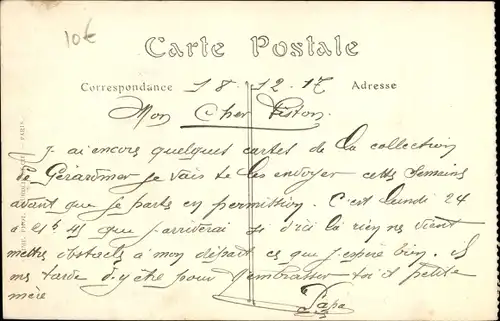 10€
Carte Postale
Correspondance 18.12.17 Adresse
Mon Cher Fiston.
J'ai encors quelques cartes de la collection
de Gérardmer je vais te les envoyer cette semains
avant que je parts en permission. C'est lundi 24
a que j'arriverai si d'ici là rien ne vient
mettre obstacle a mon départ ce que j'espère bien. il
me tarde d'y etre pour t'embrasser toi et petite
mère
Papa